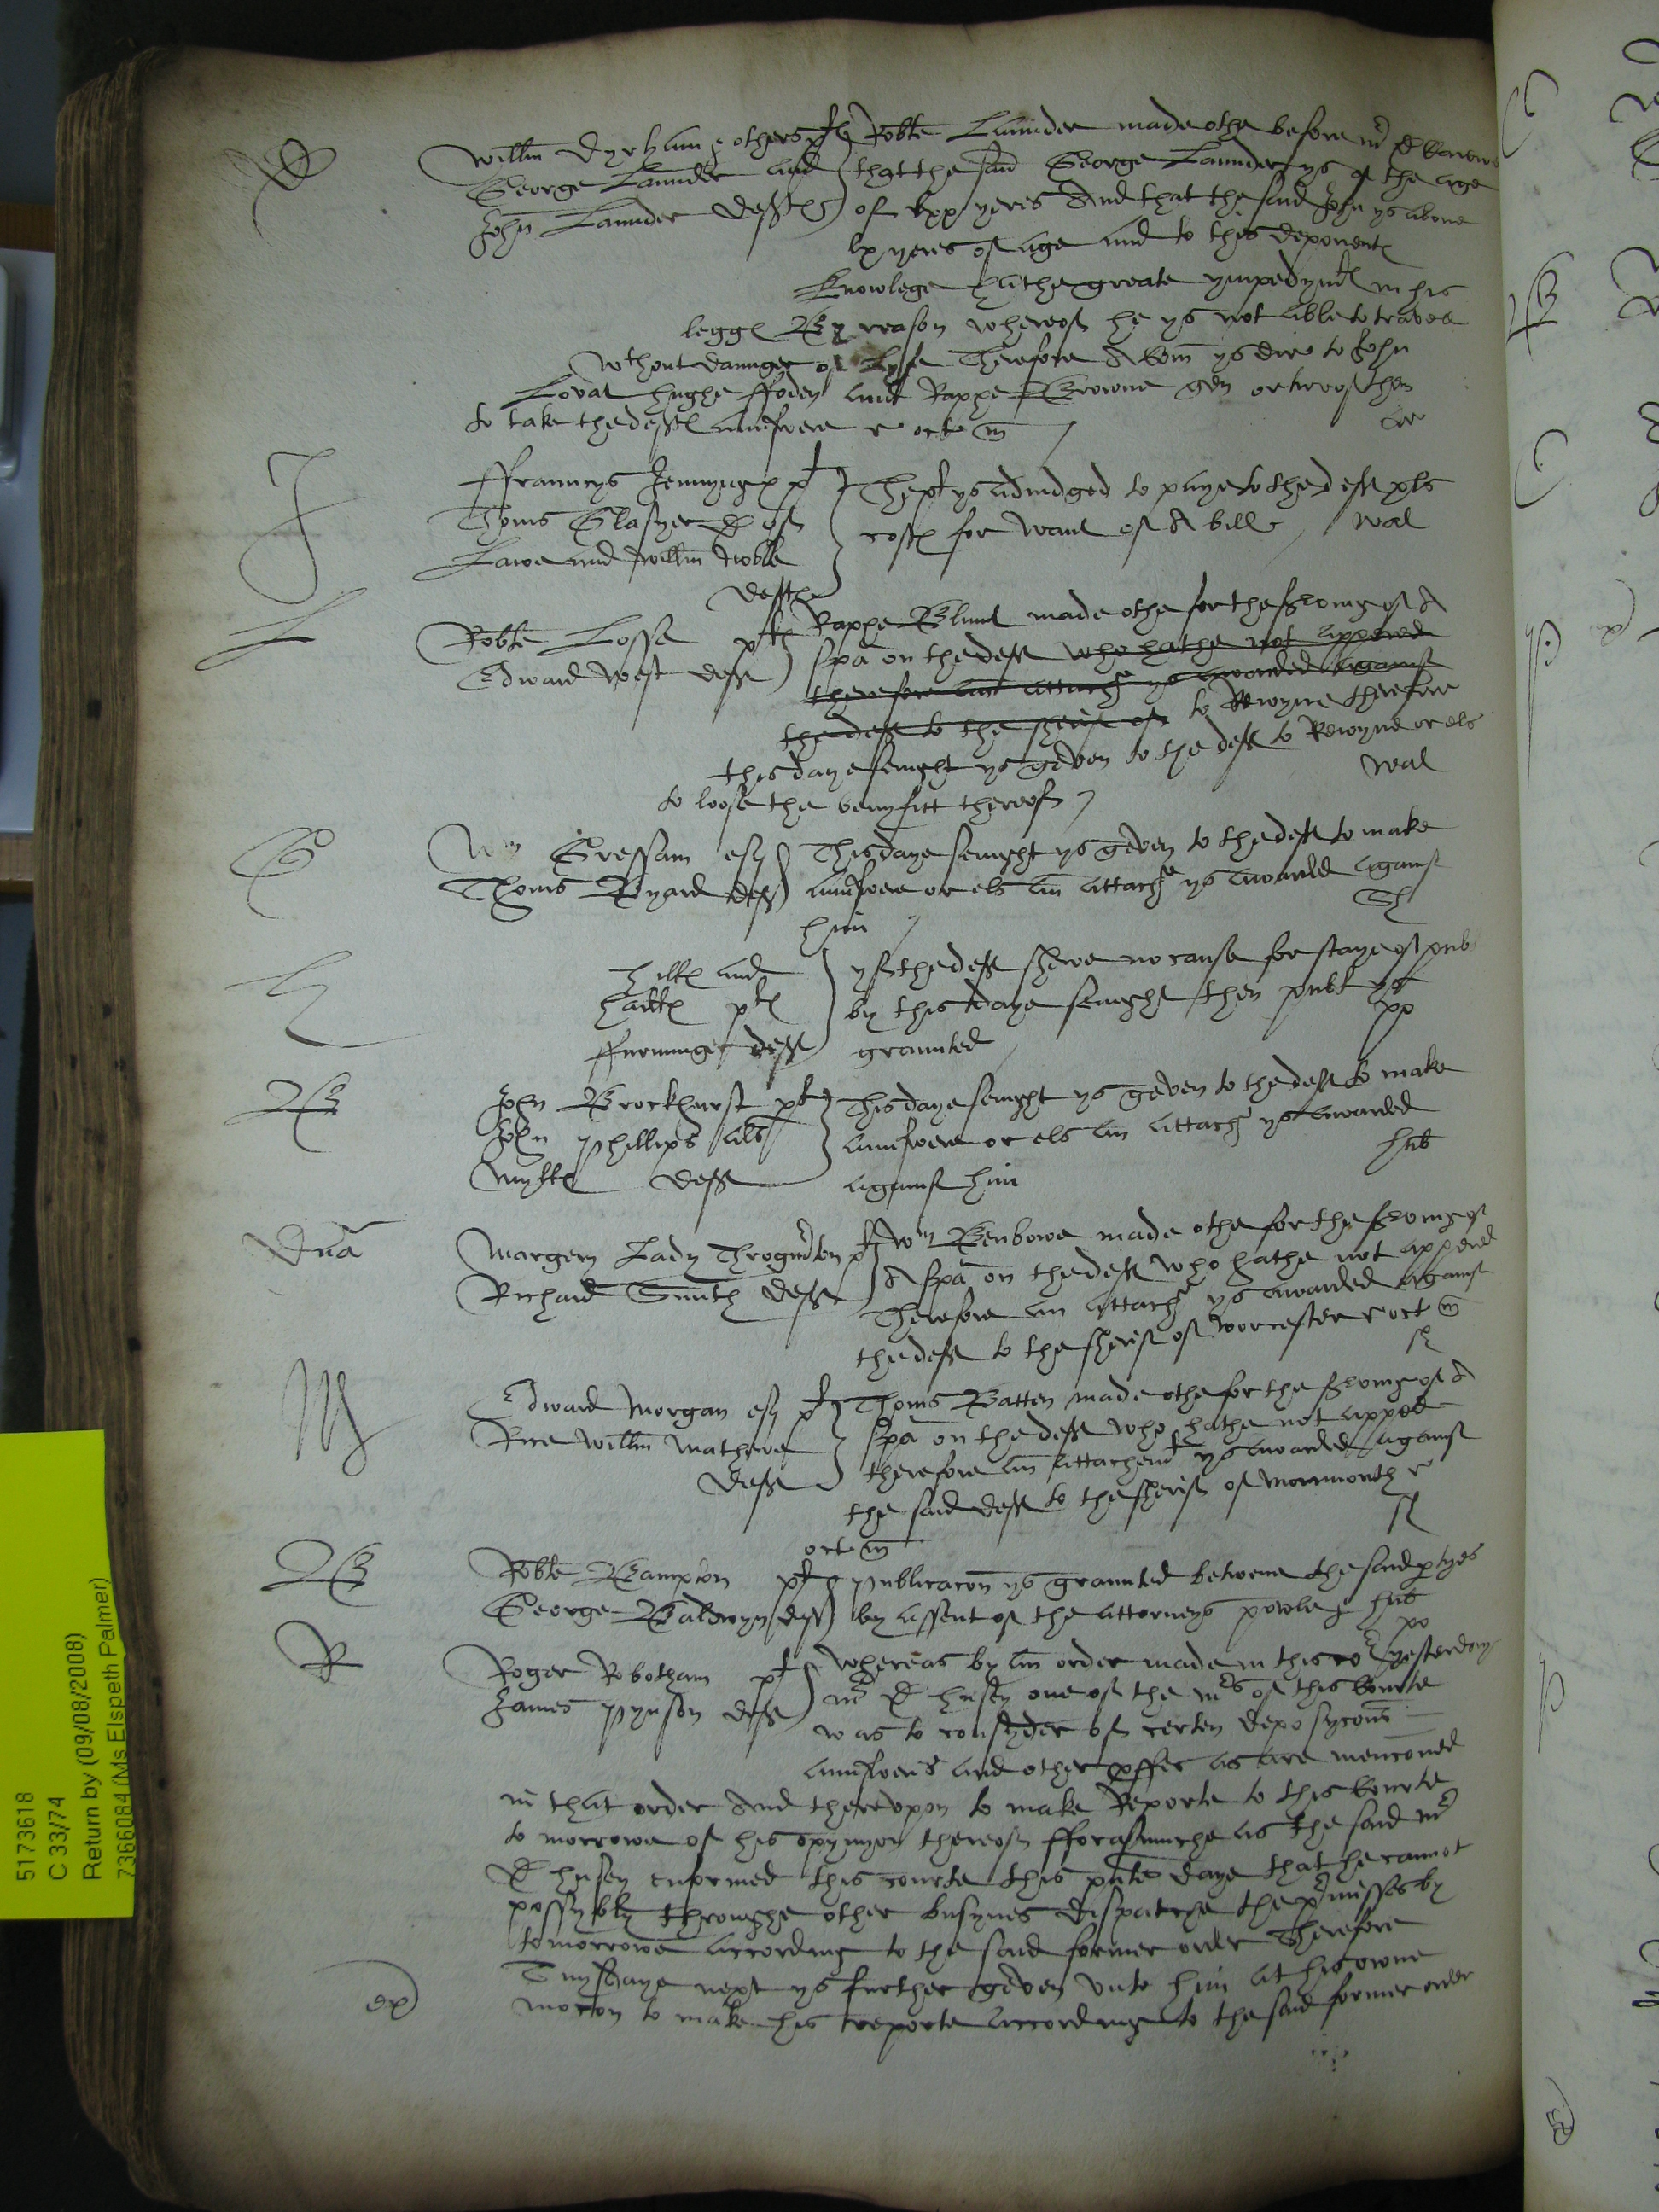 D
Willm Dyrham & others plt Robte Launder made othe before mr D Carewe
George Launder and that the said George Launder ys of the age
John Launder defftes of lxxx yeres And that the said John ys above
lx yeres of age and to this deponentes
knowlege hathe greate ympedymt in his
legges By reason whereof he ys not able to travell
wthout daunger of lyfe Therefore A Com ys dire to John
hughe ffoden and Rappe Browne gen or two of them
to take the defftes aunswere r octo m
J
ffrauncys Jennynges plt The plt ys adiudged to paye to the deff
Thoms Glasyer costes for want of A bill wal
Lawe and Willm
defftes
L
Robte Losse plt Rappe Blunt made othe for the servinge of A
Edward West deff spa on the deff who hathe not appered
therefore an attachr ys awarded against
the deff to the sherif of to Rewyne therefore
this daye senight ys geven to the deff to Rewyne or els
to loose the benyfitt thereof wal
G
Wm Gressam esq This daye senight ys geven to the deff to make
Thoms Byard deff aunswere or els an attachr ys awarded against
him
H
Hilles and yf the deff shewe no cause for staye of publ
plt by this daye senight then publ ys
deff graunted
B
John Brockhurst plt This daye senight ys geven to the deff to make
John Phillips als aunswere or els an attachr ys awarded
deff against him hub
Dna
Margery Lady Throgmrton plt Wm Benbowe made othe for the servinge of
Richard Smith deff A spa on the deff who hathe not appered
Therefore an attachr ys awarded against
the deff to the sherif of Worcester r oct m
M
Edward Morgan esq plt Thoms Batten made othe for the servinge of A
Rice Willm Mathewe spa on the deff who hathe not appered
deff therefore an attachemt ys awarded against
the said deff to the sherif of Monmouth r
octo m
B
Robte Bampton plt Publicacon ys graunted betwene the said ptyes
George Baldwyn deff by assent of the attorneys powle & hub
R
Roger Robotham plt Whereas by an order made in this co yesterday
James Pynson deff mr D husey one of the mrs of this Courte
was to consyder of certen deposycons
aunswers and other proffes as are menconed
in that order And thereupon to make Reporte to this Courte
to morrowe of his opynyon thereof fforasmuche as the said mr
D husey enformed this courte this pnte daye that he cannot
possybly throughe other busynes dispatche the prmisses by
tomorrowe according to the said former order Therefore
Tuysdaye next ys further geven unto him at his owne
ex
mocon to make his reporte according to the said former order
5173618
C 33/74
Return by (09/08/2008)
7366084 (Ms Elspeth Palmer)